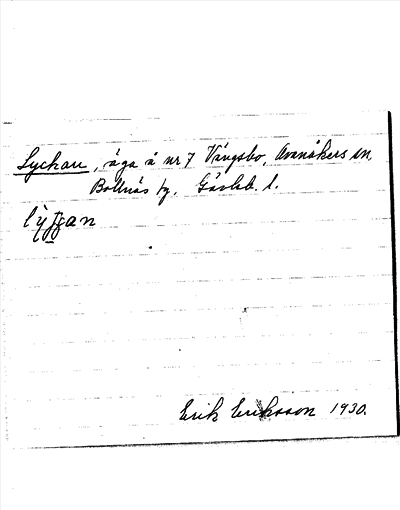 Lyckan, äga å nr 7 Vängsbo, Arenåkers sn,
Bollnäs tg. Gävleb. l.
Erik Eriksson 1930.